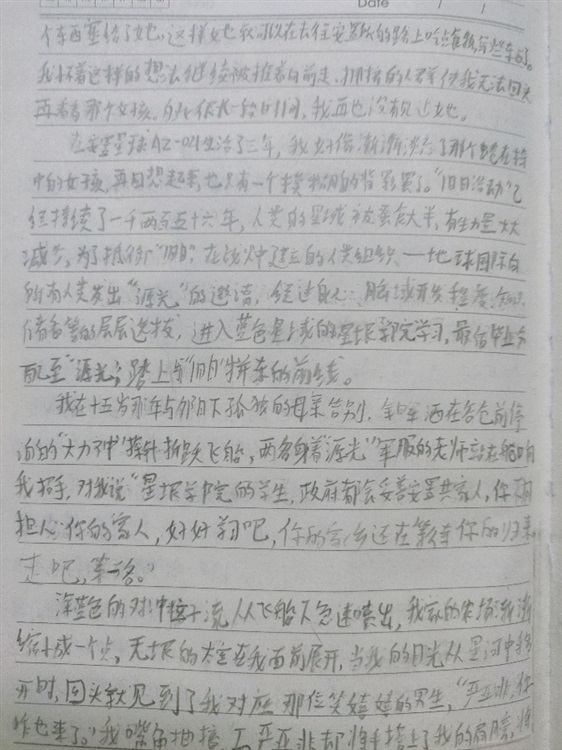 Date / /
个东西塞给了她，这样她就可以在去往安置所的路上吃点维持与些东西。
我怀着这样的想法继续被推着向前走，拥挤的人群使我无法回头
再看看那个女孩，的此后很长一段时间，我再也没有见过她。
在安置星球AZ-021生活了三年，我好像渐渐淡忘了那个蹲在
中的女孩，再回想起来也只有一个模糊的背影罢了。"旧日浩劫"已
经持续了一千两百五十六年，人类的星域被蚕食大半，有生力量大大
减少，为了抵御"旧日"，在战火中建立的人类组织——地球国际向
所有人类发出"源光"的邀请，经过身心、脑域开发程度、知识
储备等的层层选拔，进入蓝色星域的星垠学院学习，最后毕业分
配至"源光"，踏上与"旧日"拼杀的前线。
我在十五岁那年与那日下孤独的母亲告别，余晖洒在谷仓前停
泊的"大力神"推针折跃飞船，两名身着"源光"军服的老师站在舱口向
我招手，对我说"星垠学院的学生，政府都会妥善安置其家人，你不用
担心你的家人，好好学习吧，你的家乡还在等待你的归来。
走吧，第一名。"
深蓝色的对冲粒子流从飞船下急速喷出，我家的农场渐渐
缩小成一个点，无垠的太空在我面前展开，当我的目光从星河中移
开时，回头就见到了我对应那位笑嘻嘻的男生，"严亚非，你
咋也来了。"我嘴角抽搐，严亚非却将手搭上了我的肩膀，